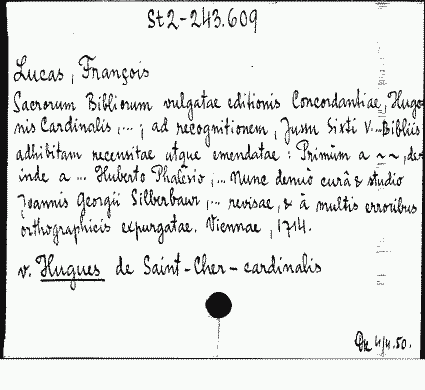 St2-243.609
Lucas, François
Sacrorum Bibliorum vulgatae editionis Concordantiae, Hugo
nis Cardinalis, ... ; ad recognitionem, Jussu Sixti V... Bibliis
adhibitam recensitae atque emendatae : Primùm a ~~, de-
inde a ... Huberto Phalesio, ... nunc denuò curâ & studio
Joannis Georgii Silberbaur, ... revisae, & à multis erroribus
orthographicis expurgatae. Viennae, 1714.
v. Hugues de Saint-Cher-cardinalis
4/4.50.